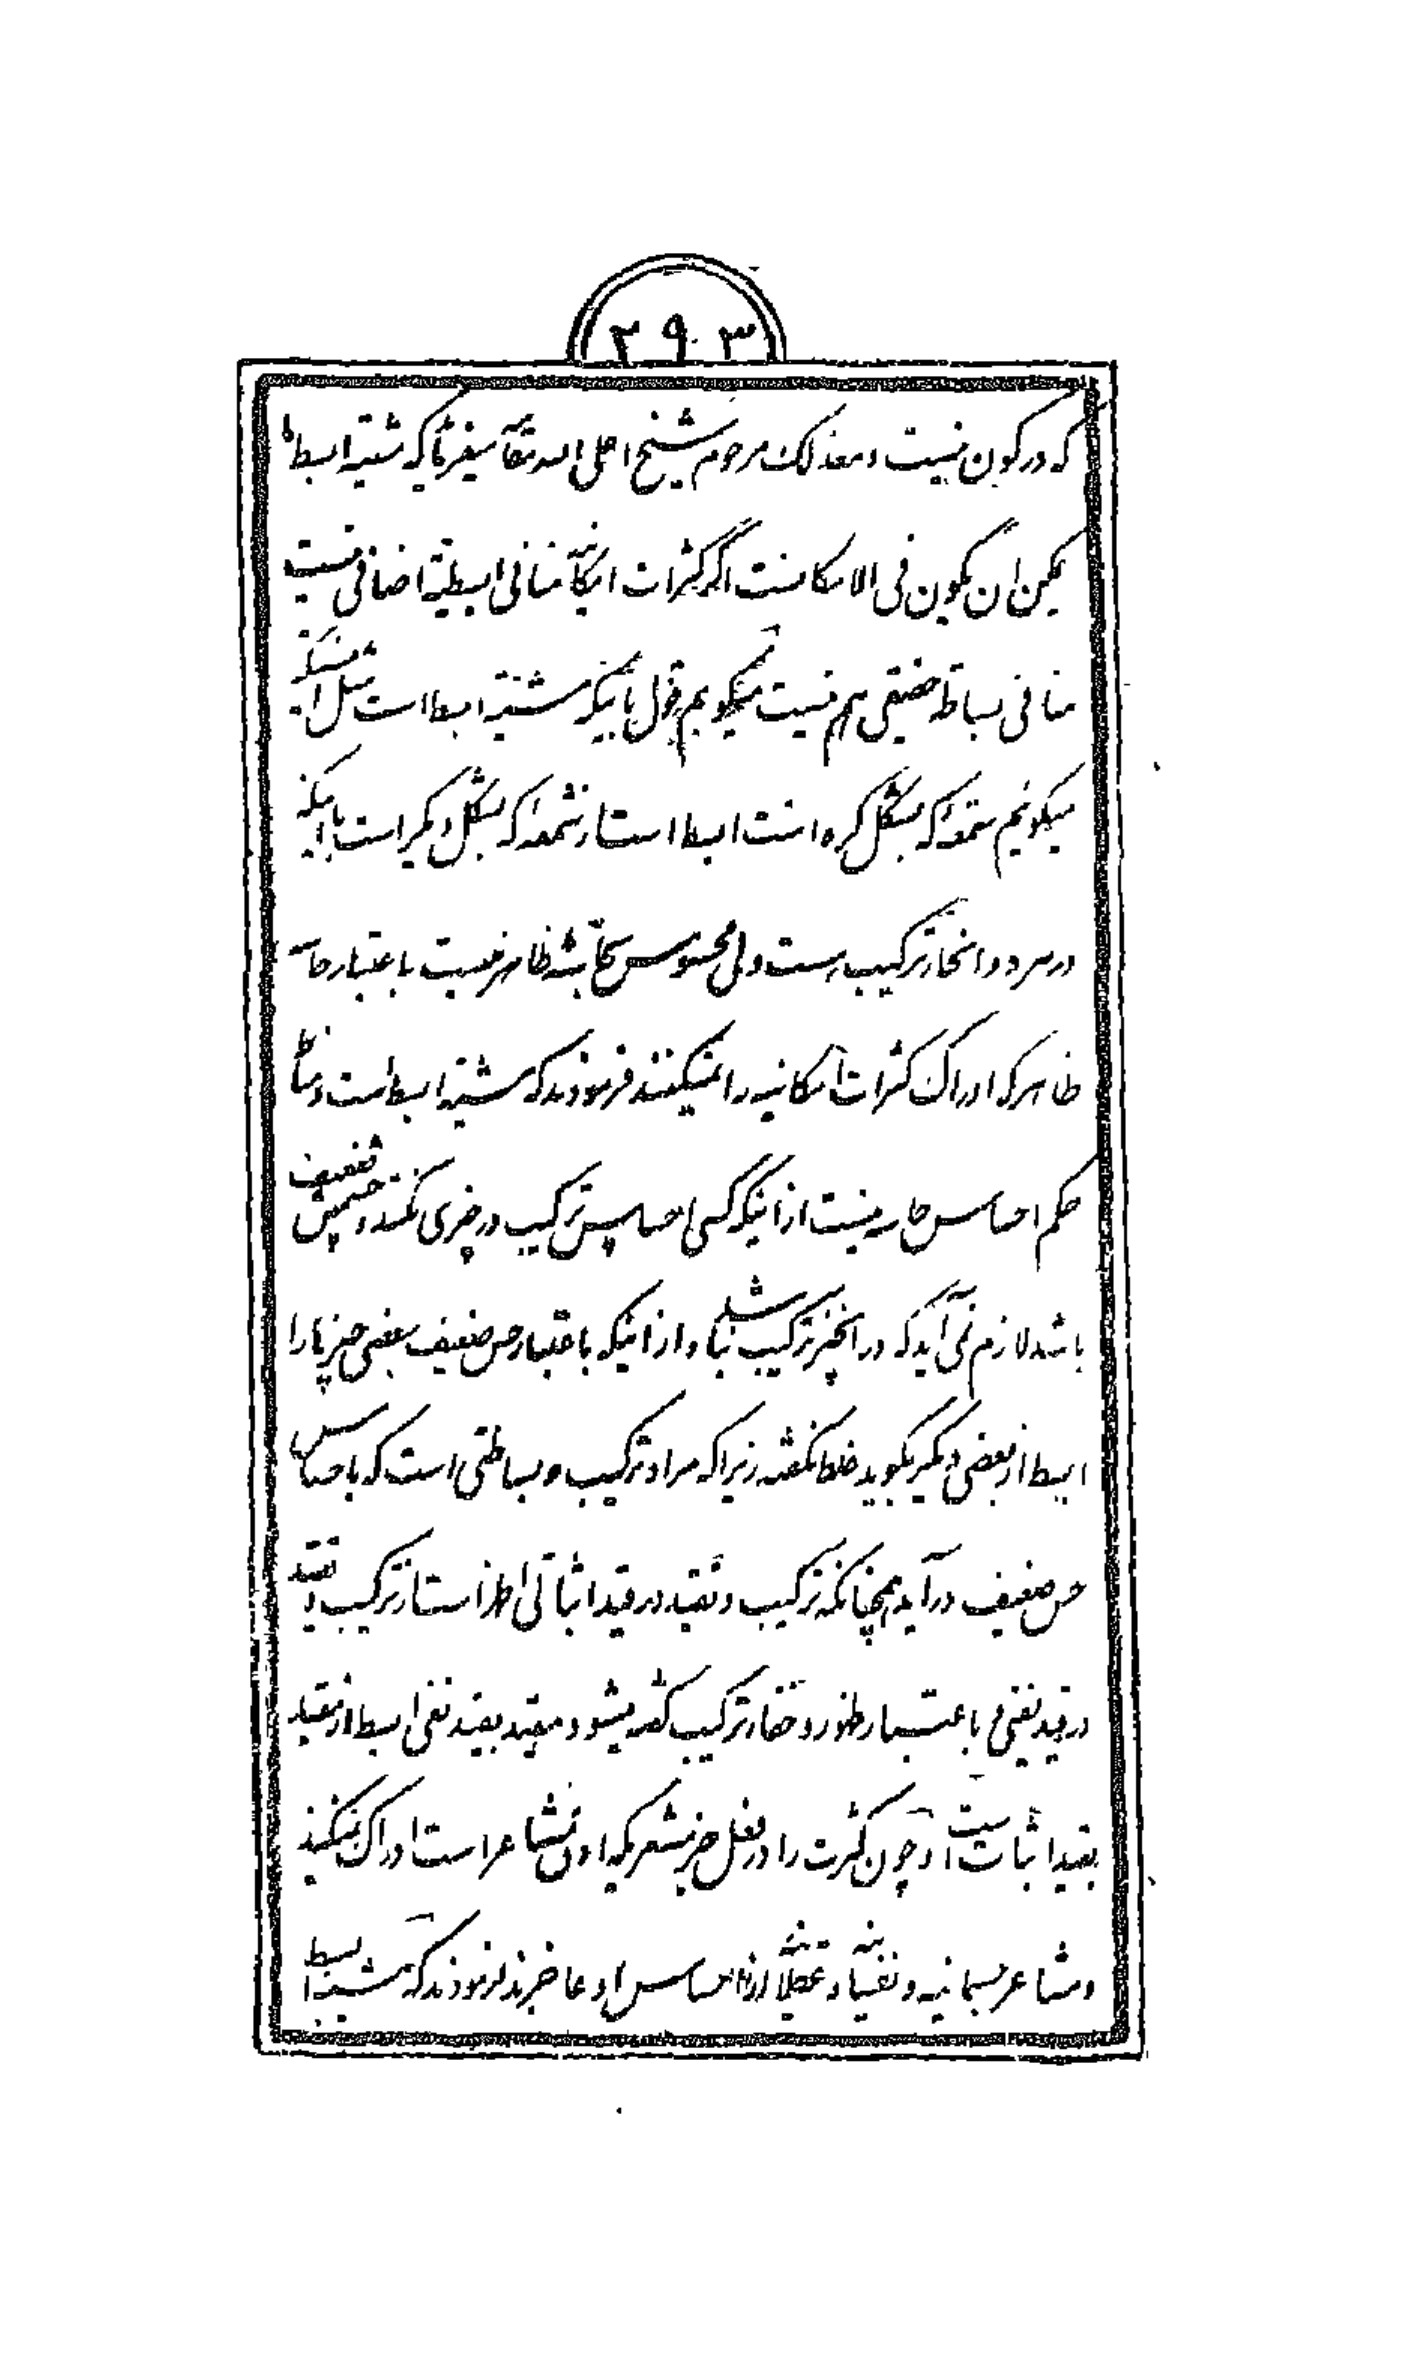 ۲۹۳
که در کون نیست و معذلک مرحوم شیخ اعلی الله مقامه میفرماید که مشیة ابسط ما
یمکن ان یکون فی الامکانست اگر کثرات امکانیه منافی ابسطیة اضافی نیست
منافی بساطة حقیقی هم نیست میگویم قول باینکه مشیة ابسط است مثل اینستکه
میگوئیم شمعه که بشکل کره است ابسط است از شمعه که بشکل دیگر است با اینکه
در هر دو انحاء ترکیب هست ولی محسوس بحاسه ظاهر نیست باعتبار حاسه
ظاهر که ادراک کثرات امکانیه را نمیکنند فرمودند که مشیة ابسط است و مناط
حکم احساس حاسه نیست از اینکه کسی احساس ترکیب در چیزی نکند و حسش ضعیف
باشد لازم نمی آید که در آنچیز ترکیب نباشد و از اینکه باعتبار حس ضعیف بعضی چیزها را
ابسط از بعضی دیگر بگوید غلط نگفته زیرا که مراد ترکیب و بساطتی است که باحساس
حس ضعیف در آید همچنانکه ترکیب و تقید در قید اثباتی اظهر است از ترکیب و تقید
در قید نفی باعتبار ظهور و خفاء ترکیب گفته میشود مقید بقید نفی ابسط از مقید
بقید اثبات است و چون کثرت را در فعل جز مشعریکه اول مشاعر است ادراک نمیکند
و مشاعر جسمانیه و نفسانیه و عقلانیه از احساس او عاجزند فرمودند که مشیة ابسط